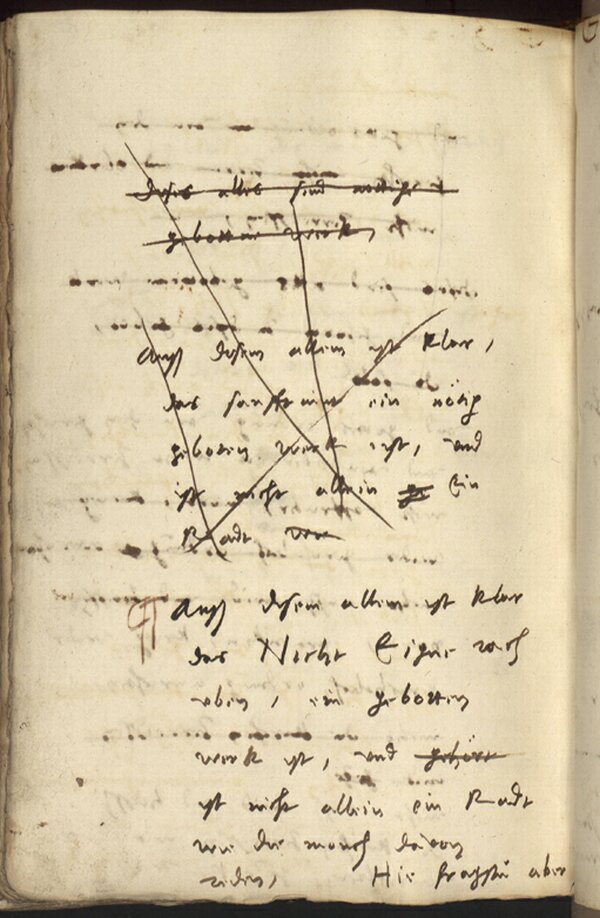 dises alles sind nottige
gebottne werk,
Auß disem allem ist klar,
das sanfftmut ein nötig
geboten werk ist, und
ist nicht allein ein
Radt
Auß disem allem ist klar
das Nicht Eigne rach
uben, ein gebotten
werk ist, und gehört
ist nicht allein ein Radt
wie die monch davon
reden, Hie fragstu aber